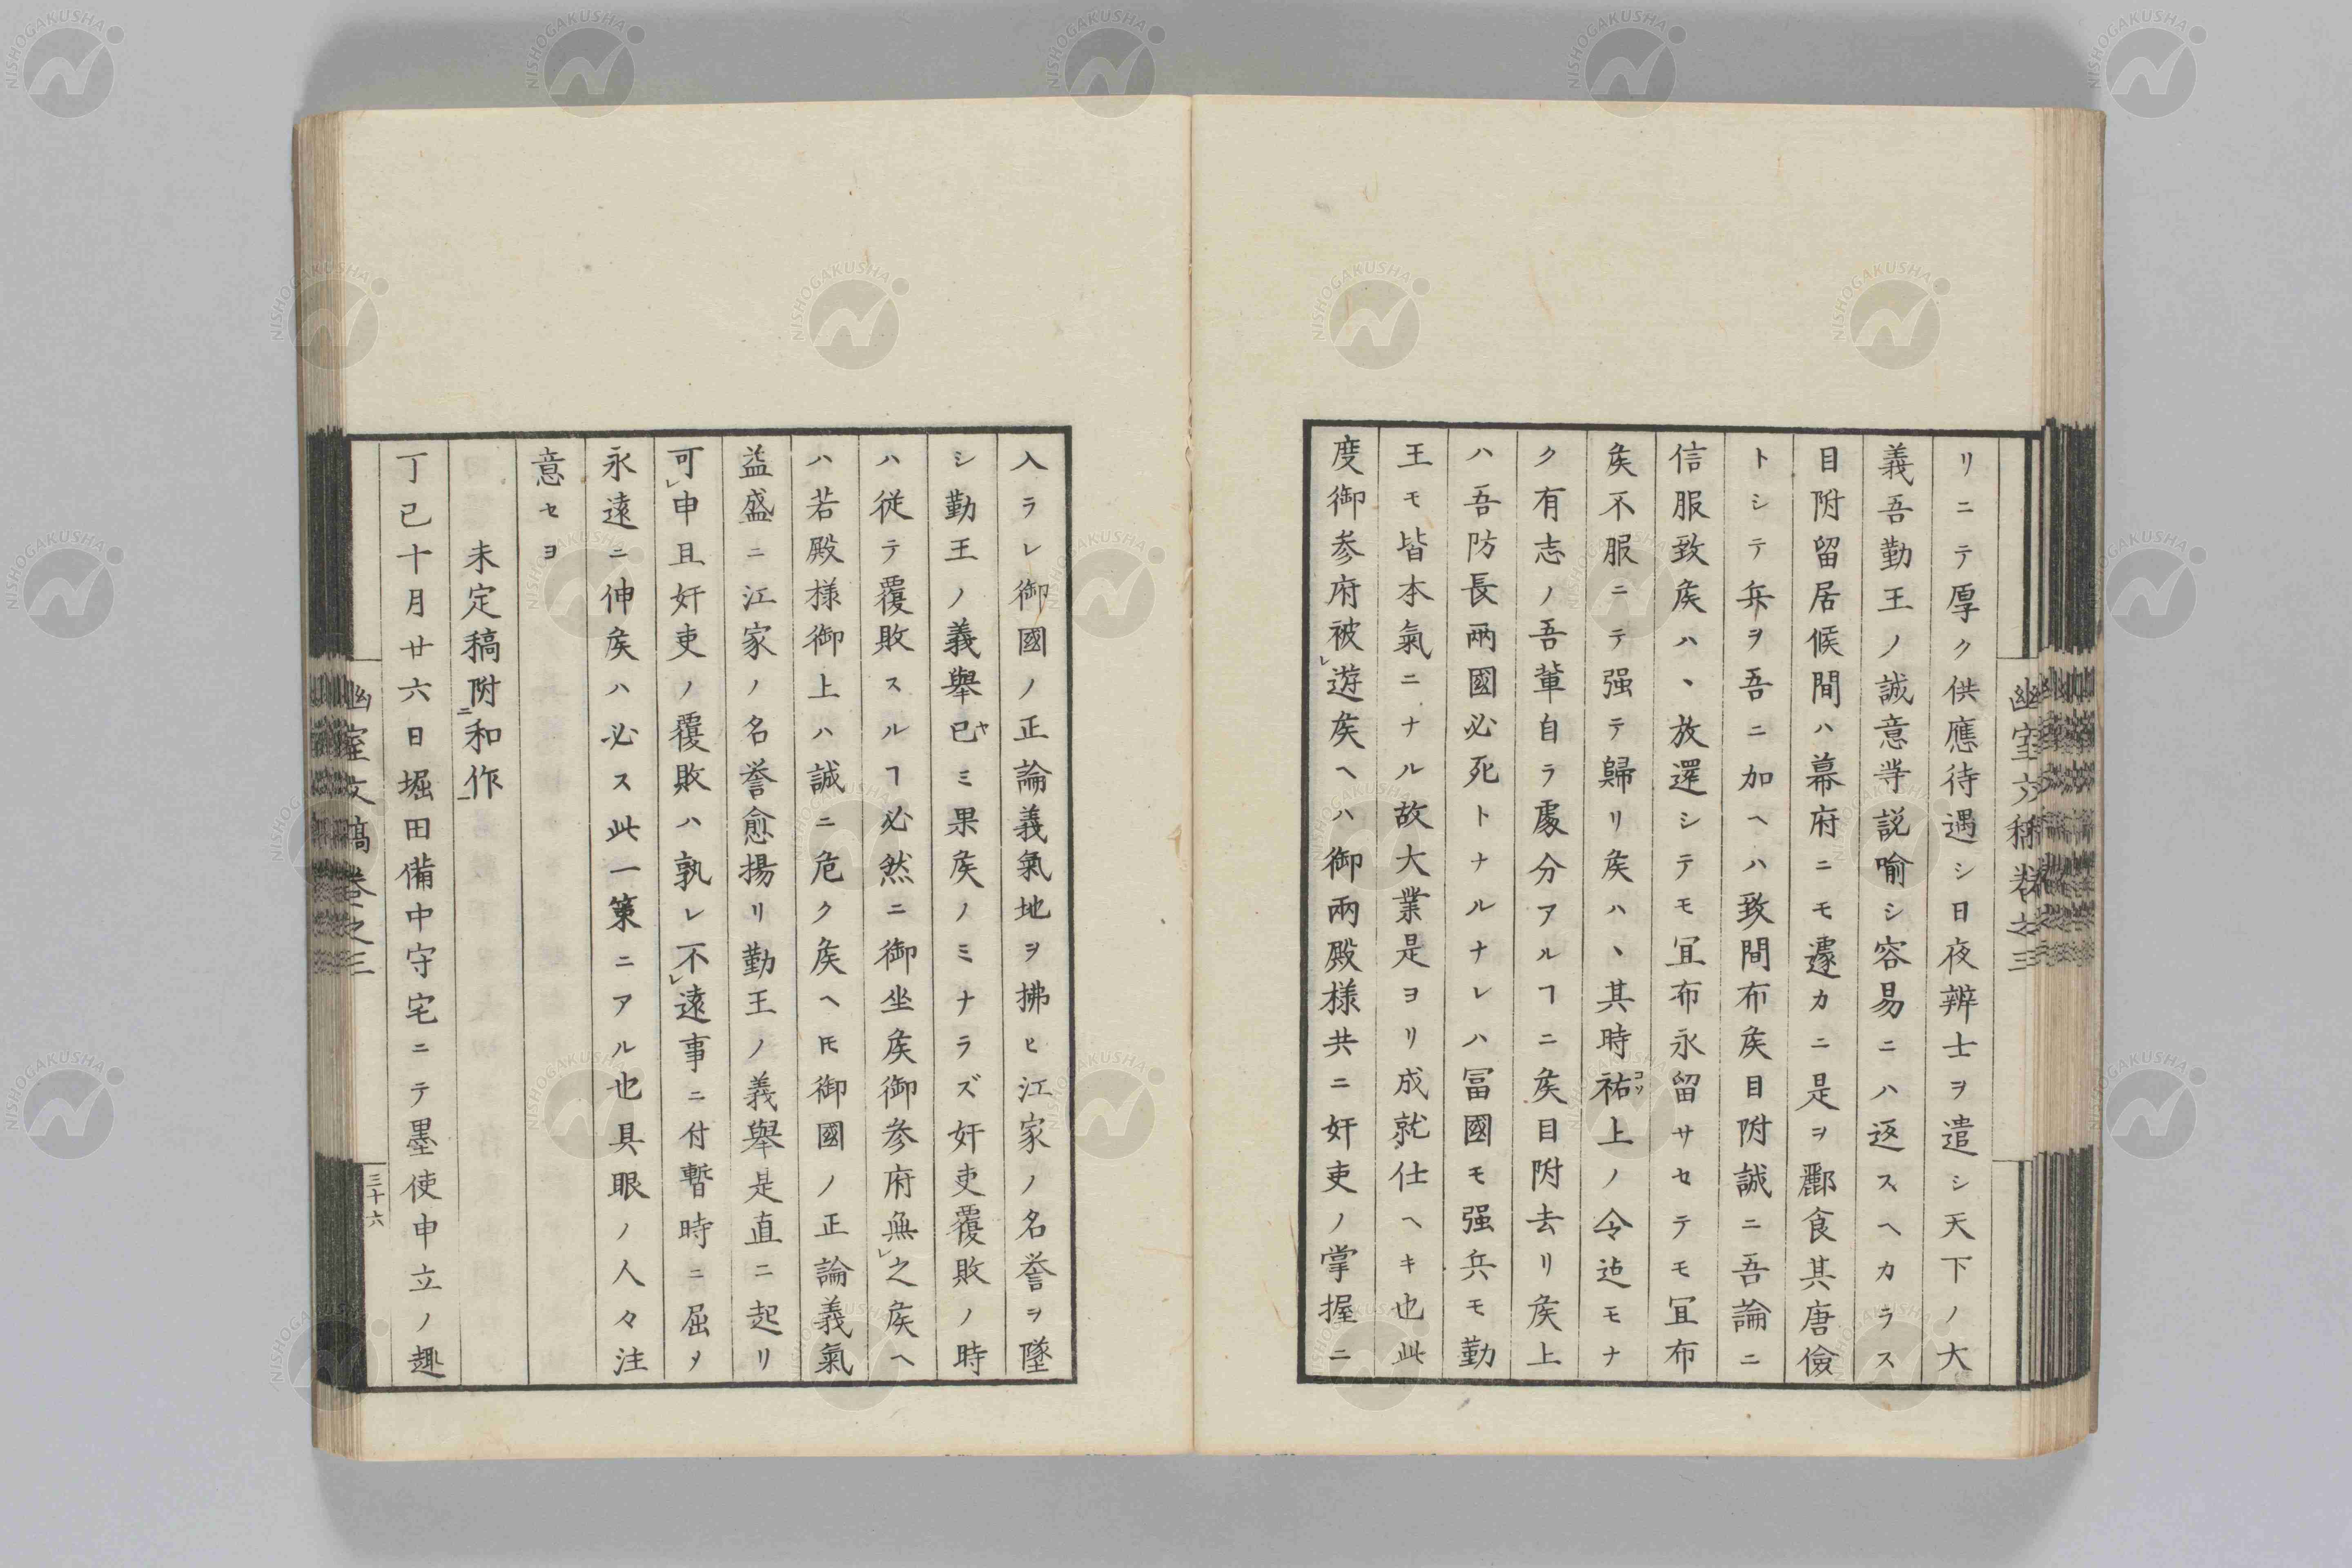 リニテ厚ク供應待遇シ日夜辨士ヲ遣シ天下ノ大
義吾勤王ノ誠意等説喻シ容易ニハ返スヘカラス
目附留居候間ハ幕府ニモ遽カニ是ヲ酈食其唐儉
トシテ兵ヲ吾ニ加ヘハ致間布矦目附誠ニ吾論ニ
信服致矦ハヽ放還シテモ冝布永留サセテモ冝布
矦不服ニテ强テ歸リ矦ハヽ其時祐コソ上ノ令迠モナ
ク有志ノ吾輩自ラ處分アルヿニ矦目附去リ矦上
ハ吾防長兩國必死トナルナレハ冨國モ强兵モ勤
王モ皆本氣ニナル故大業是ヨリ成就仕ヘキ也此
度御参府被レ遊矦ヘハ御兩殿様共ニ奸吏ノ掌握ニ
幽室文稿卷之三
入ラレ御國ノ正論義氣地ヲ拂ヒ江家ノ名誉ヲ墜
シ勤王ノ義舉已ヤミ果矦ノミナラズ奸吏覆敗ノ時
ハ従テ覆敗スルヿ必然ニ御坐矦御参府無レ之矦ヘ
ハ若殿様御上ハ誠ニ危ク矦ヘ𪜈御國ノ正論義氣
益盛ニ江家ノ名誉愈揚リ勤王ノ義舉是直ニ起リ
可レ申且奸吏ノ覆敗ハ孰レ不レ遠事ニ付暫時ニ屈ヲ
永遠ニ伸矦ハ必ス此一策ニアル也具眼ノ人々注
意セヨ
未定稿附ニ和作一
丁已十月廿六日堀田備中守宅ニテ墨使申立ノ趣
幽室文稿卷之三
三十六
NISHOGAKUSHA